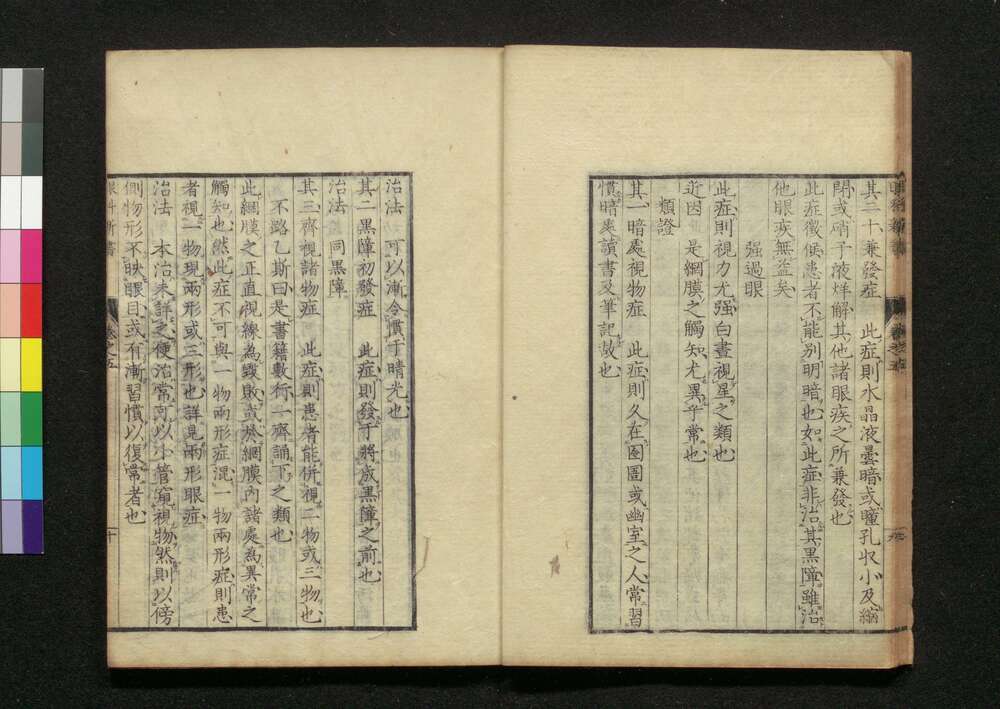 其二十兼發症　此症則水晶液曇暗或瞳孔收小及縮
閉或硝子液烊解其他諸眼疾之所兼發也
此症徵候患者不能別明暗也如此症非治其黒障雖治
他眼疾無益矣
强過眼
此症則視力尤强白晝視星之類也
近因　是網膜之觸知尤異乎常也
類證
其一暗處視物症　此症則久在囹圄或幽室之人常習
慣暗處讀書及筆記故也
治法　可以漸令慣于晴光也
其二黒障初發症　此症則發于將成黒障之前也
治法　同黒障
其三齊視諸物症　此症則患者能併視二物或三物也
不路乙斯曰是書籍數行一齊誦下之類也
此網膜之正直視線為毀敗或於網膜內諸處為異常之
觸知也然此症不可與一物兩形症混一物兩形症則患
者視一物現兩形或三形也詳見兩形眼症
治法　本治未詳之便治常可以小管窺視物然則以傍
側物形不映眼目或有漸習慣以復常者也
眼科新書　卷之五　十